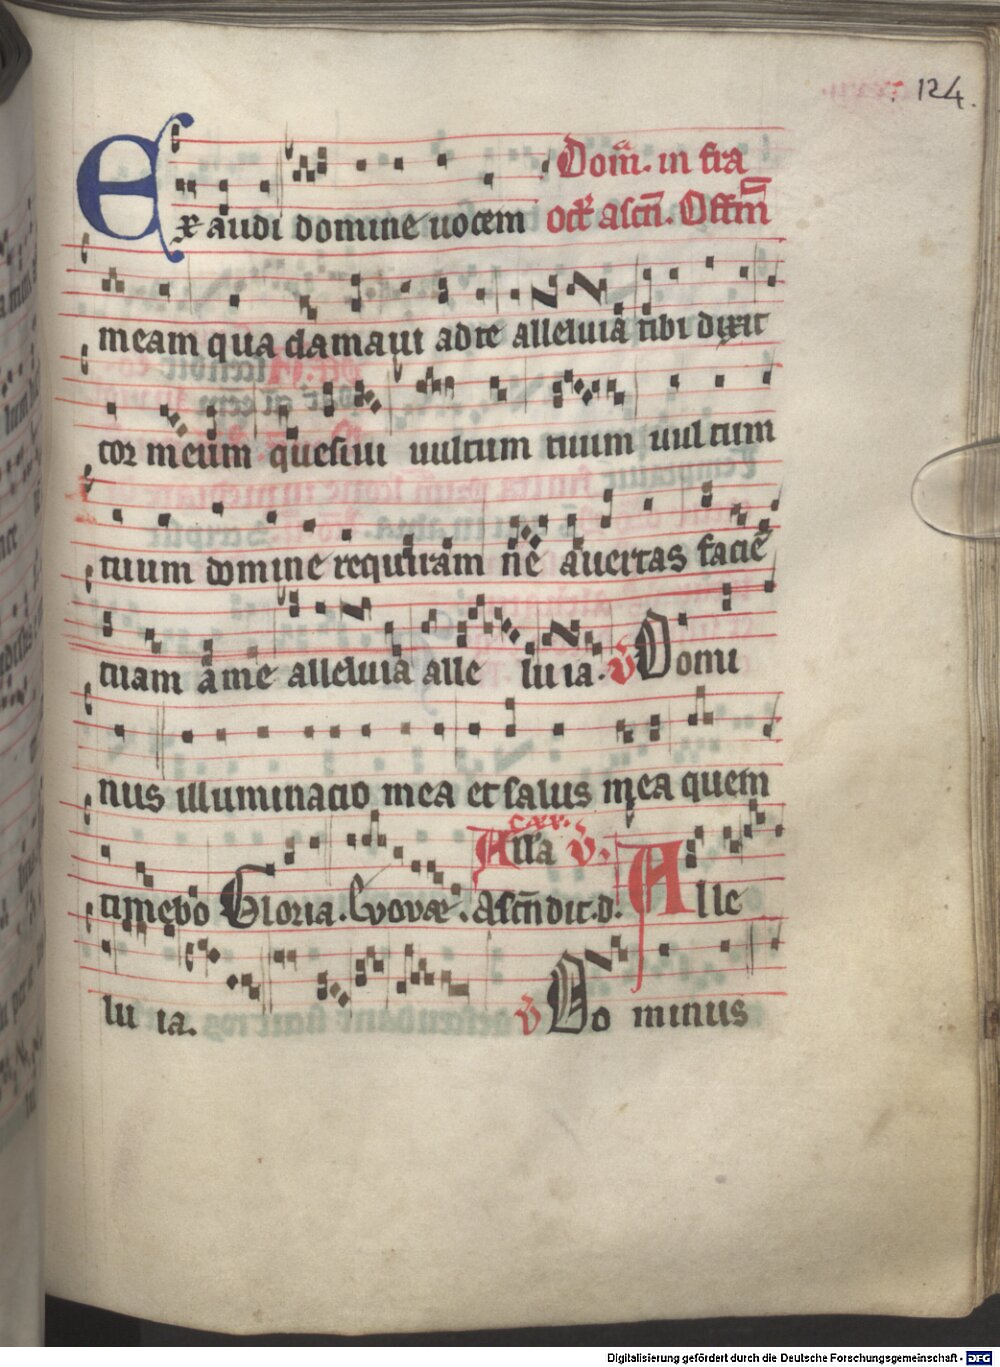 124.
Exaudi domine uocem Dom̄. in fra
oct̄ ascn̄. Offm̄
meam qua clamaui ad te alleluia tibi dixit
cor meum quesiui uultum tuum uultum
tuum domine requiram ne auertas faciē
tuam a me alleluia alle lu ia. v̄ Domi
nus illuminacio mea et salus mea quem
cxv.
All'a v̄.
timebo Gloria. Evovae. Ascn̄dit.d. Alle
lu ia. v̄ Do minus
Digitalisierung gefördert durch die Deutsche Forschungsgemeinschaft - DFG